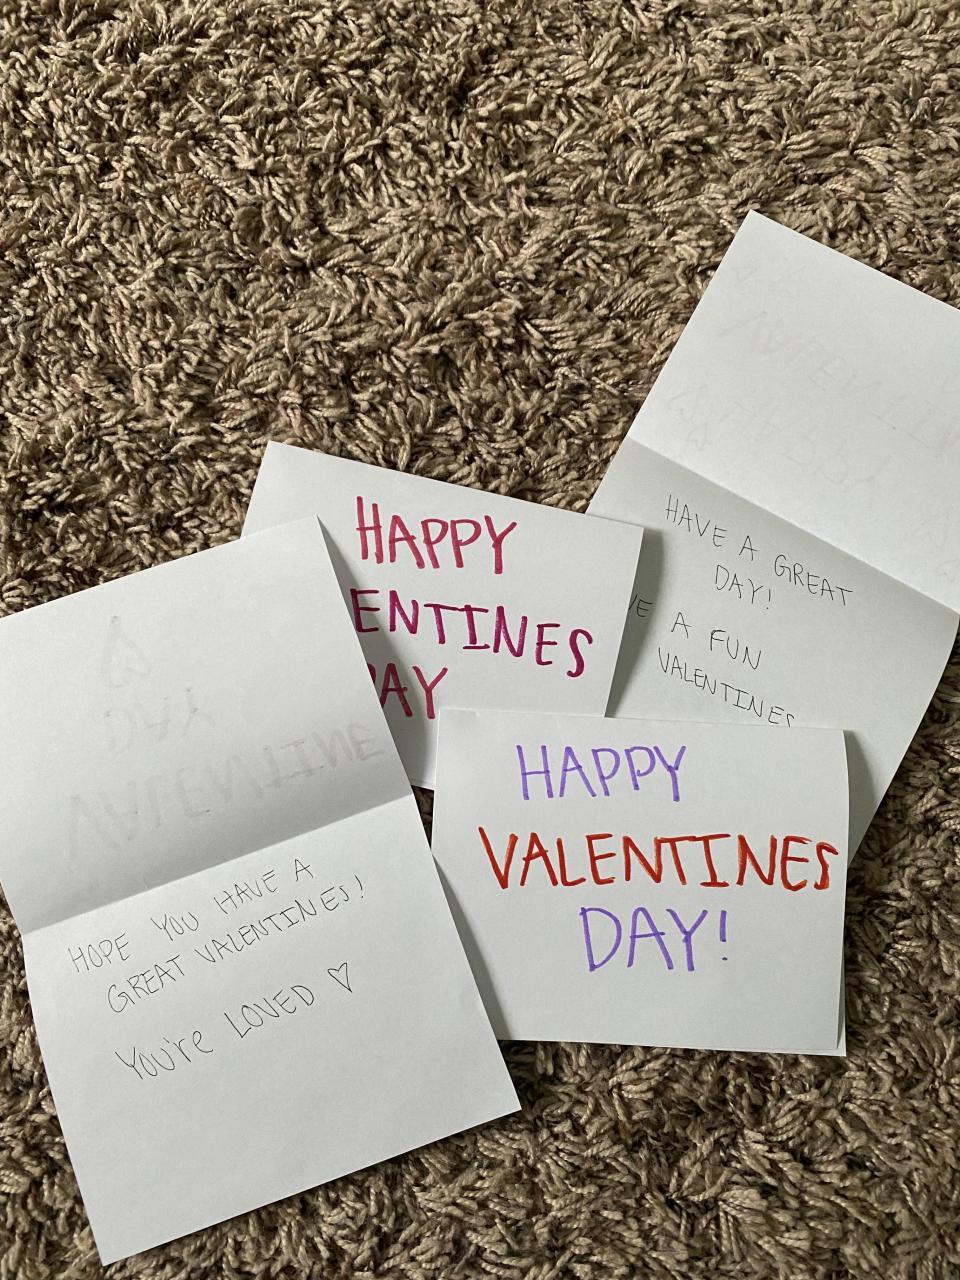 HAPPY
ENTINES
DAY
HAVE A GREAT
DAY!
A FUN
VALENTINES
HAPPY
VALENTINES
DAY!
HOPE YOU HAVE A
GREAT VALENTINES!
You're LOVED ♡